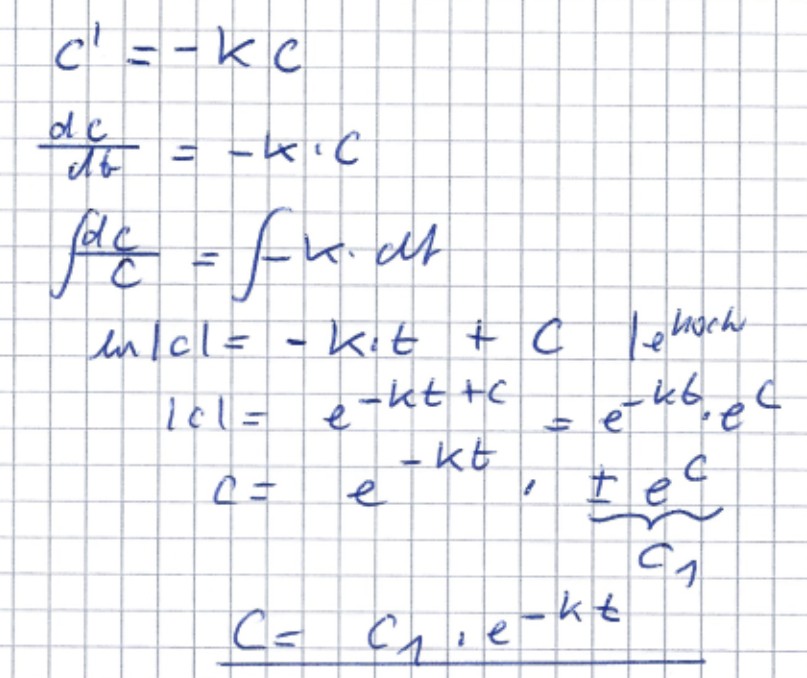 c' = -k c
dc/dt = -k · c
∫ dc/c = ∫ -k · dt
ln|c| = -k·t + C |e^hoch
|c| = e^(-kt+C) = e^(-kt) · e^C
c = e^(-kt) · ± e^C
C₁
C = C₁ · e^(-kt)